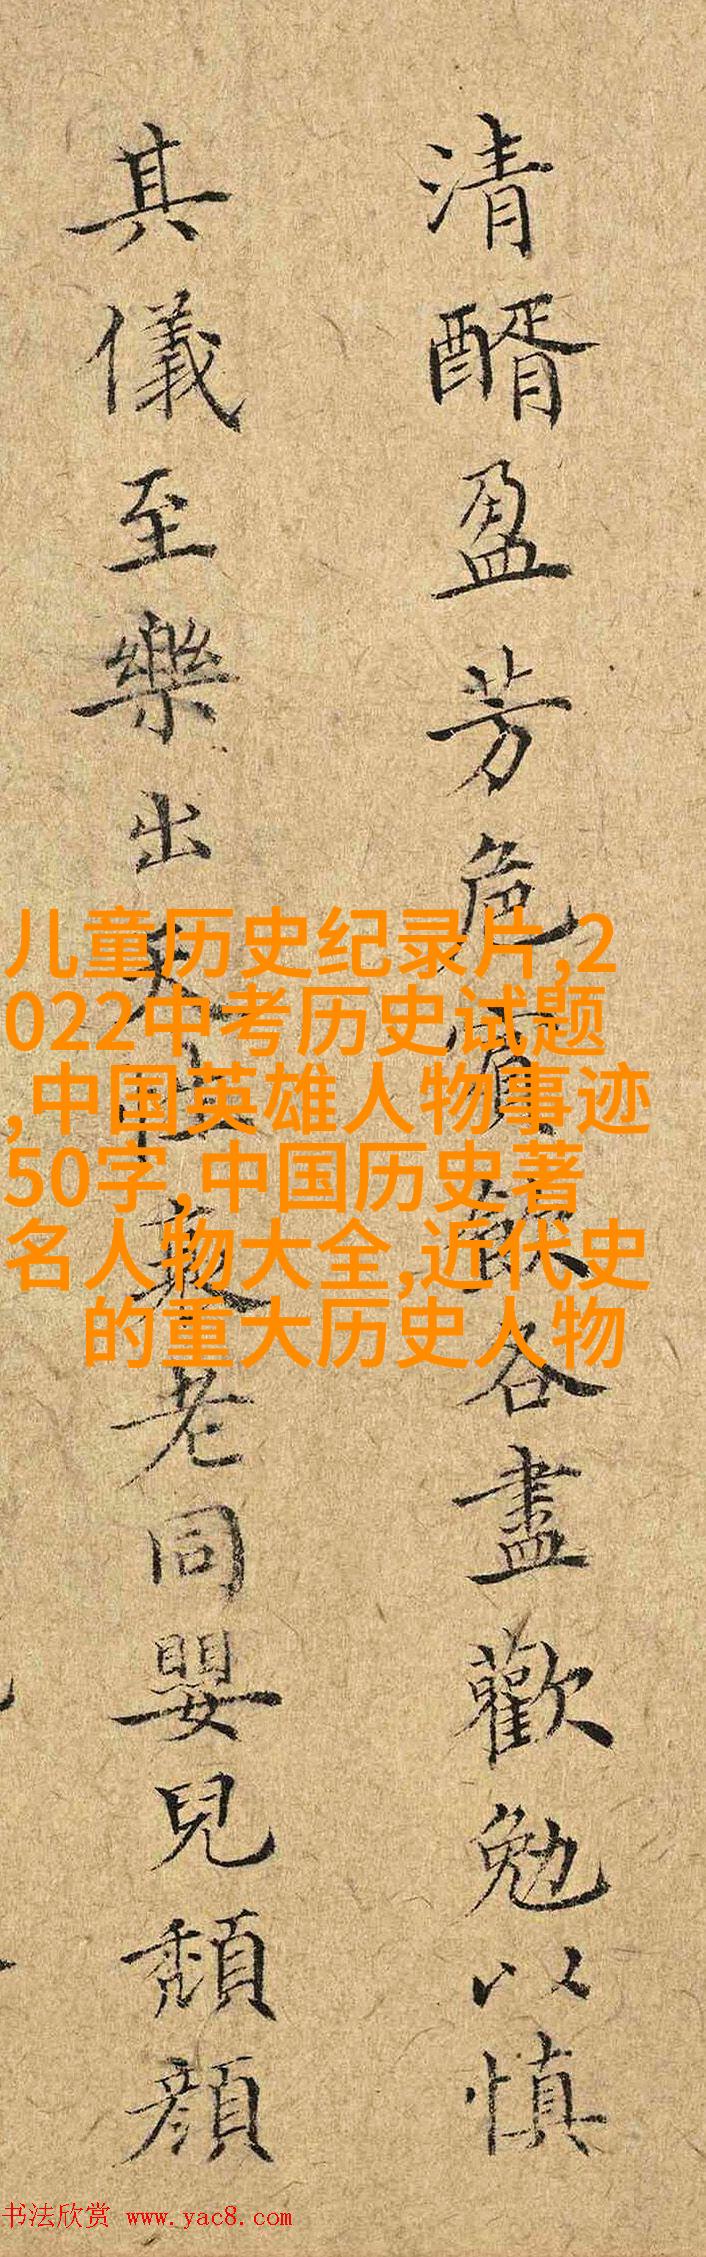 清醑盈芳巵賓飲各盡歡勉以慎
其儀至樂出天性衰老同嬰兒頽顔
儿童历史纪录片,2
022中考历史试题
,中国英雄人物事迹
50字,中国历史著
名人物大全,近代史
的重大历史人物
书法欣赏 www.yac8.com